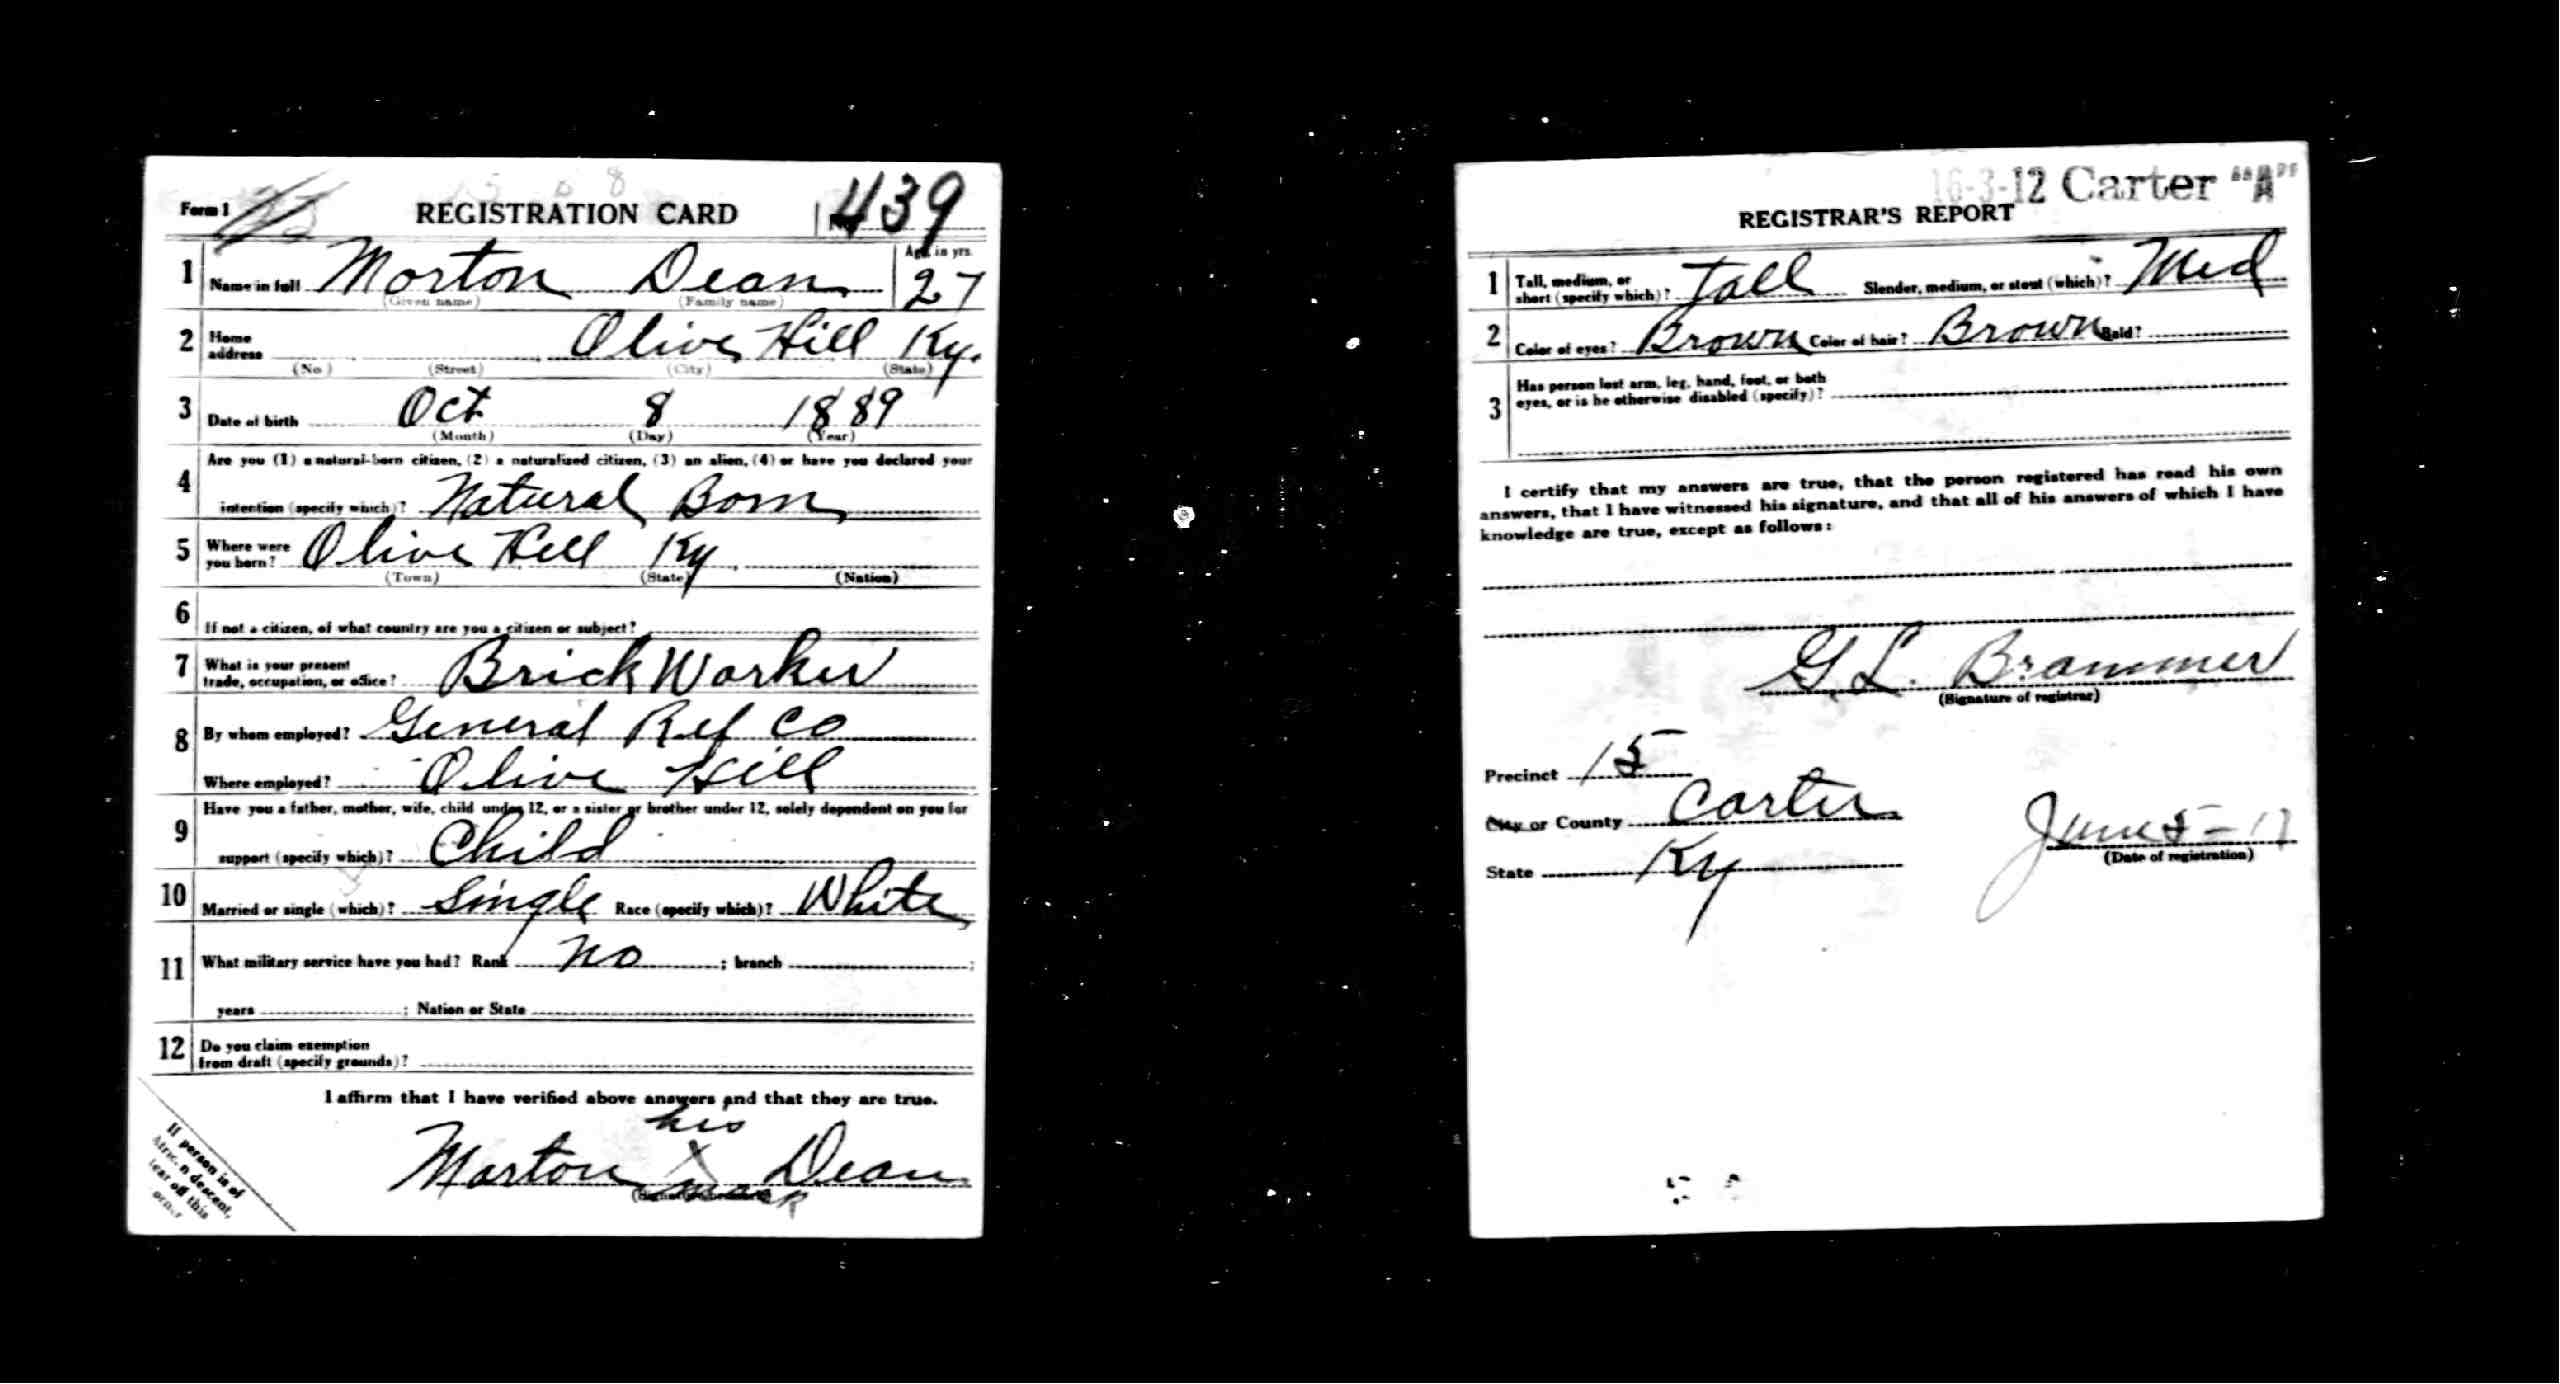 Form 1 REGISTRATION CARD 439
1 Name in full Morton Dean Age, in yrs. 27
(Given name) (Family name)
2 Home address Olive Hill Ky.
(No) (Street) (City) (State)
3 Date of birth Oct 8 1889
(Month) (Day) (Year)
4 Are you (1) a natural-born citizen, (2) a naturalized citizen, (3) an alien, (4) or have you declared your
intention (specify which)? Natural Born
5 Where were you born? Olive Hill Ky
(Town) (State) (Nation)
6 If not a citizen, of what country are you a citizen or subject?
7 What is your present trade, occupation, or office? Brick Worker
8 By whom employed? General Ref Co
Where employed? Olive Hill
9 Have you a father, mother, wife, child under 12, or a sister or brother under 12, solely dependent on you for
support (specify which)? Child
10 Married or single (which)? Single Race (specify which)? White
11 What military service have you had? Rank no ; branch ;
years ; Nation or State
12 Do you claim exemption
from draft (specify grounds)?
I affirm that I have verified above answers and that they are true.
his
Morton X Dean
mark
If person is of
descent,
tear off this
corner
16-3-12 Carter "A"
REGISTRAR'S REPORT
1 Tall, medium, or short (specify which)? Tall Slender, medium, or stout (which)? Med
2 Color of eyes? Brown Color of hair? Brown Bald?
3 Has person lost arm, leg, hand, foot, or both
eyes, or is he otherwise disabled (specify)?
I certify that my answers are true, that the person registered has read his own
answers, that I have witnessed his signature, and that all of his answers of which I have
knowledge are true, except as follows:
G L. Brammer
(Signature of registrar)
Precinct 15
City or County Carter
State Ky
June 5-17
(Date of registration)